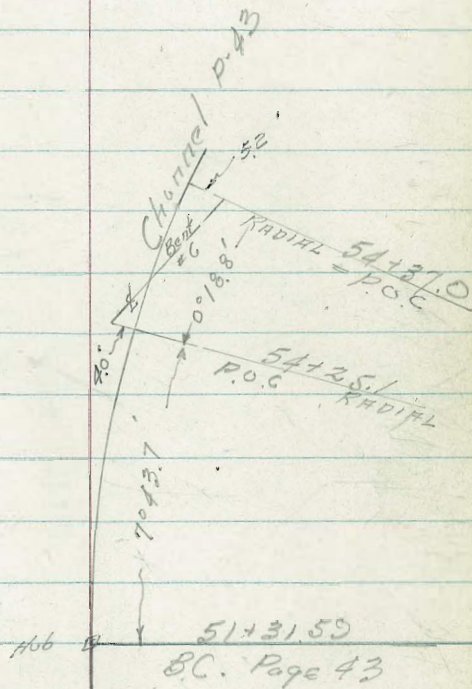 Channel P-43
5.2'
RADIAL 54+37.0
= P.O.C
Bent
#6
0°18.8'
4.0'
54+25.1
P.O.C RADIAL
7°43.7'
Hub
51+31.59
B.C. Page 43